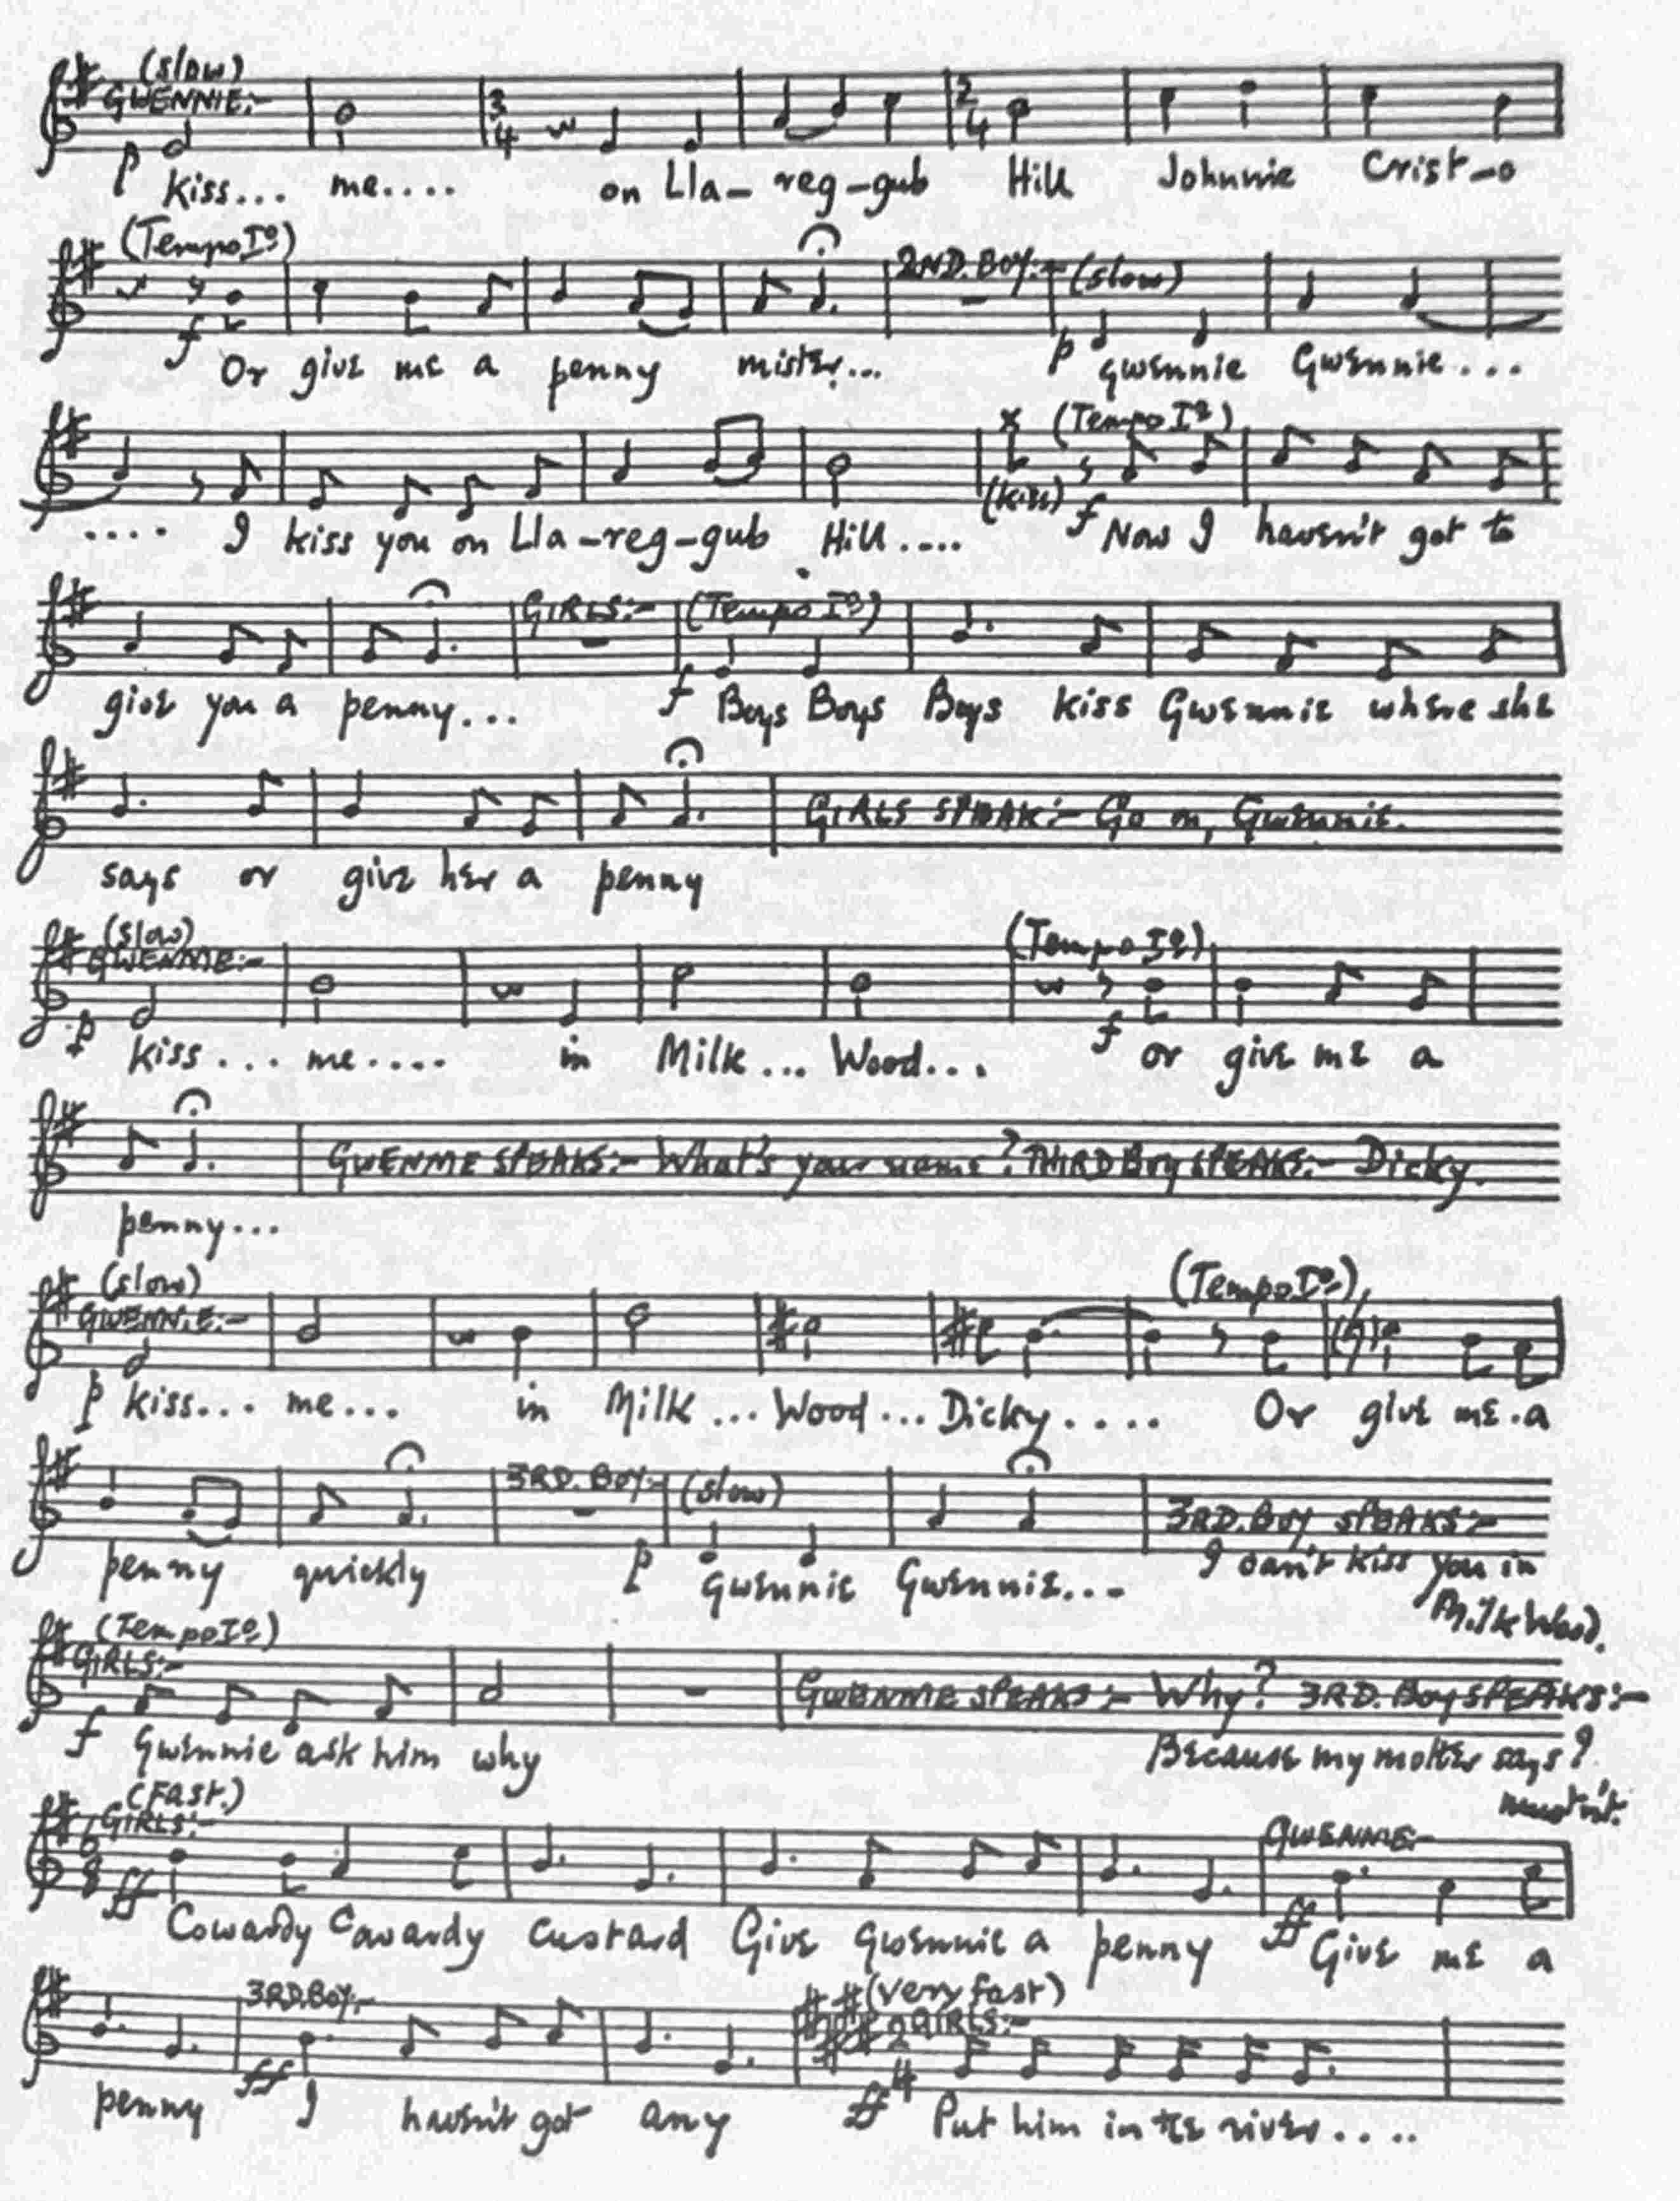 (slow)
GWENNIE:-
3/4 2/4
p Kiss... me.... on Lla-reg-gub Hill Johnnie Crist-o
(Tempo Iº) 2ND. BOY:- (slow)
f Or give me a penny mister... p Gwennie Gwennie...
x (Tempo Iº)
.... I kiss you on Lla-reg-gub Hill.... (kiss) f Now I haven't got to
GIRLS:- (Tempo Iº)
give you a penny... f Boys Boys Boys kiss Gwennie where she
GIRLS SPEAK:- Go on, Gwennie.
says or give her a penny
(slow)
GWENNIE:- (Tempo Iº)
p kiss... me.... in Milk... Wood... f or give me a
GWENNIE SPEAKS:- What's your name? THIRD Boy SPEAKS:- Dicky.
penny...
(slow) (Tempo Iº)
GWENNIE:-
p kiss... me... in Milk... Wood... Dicky.... Or give me a
3RD. BOY:- (slow) 3RD. BOY SPEAKS:-
penny quickly p Gwennie Gwennie... I can't kiss you in
Milk Wood.
(Tempo Iº)
GIRLS:- GWENNIE SPEAKS:- Why? 3RD. Boy SPEAKS:-
f Gwennie ask him why Because my mother says I
mustn't.
(Fast.)
GIRLS:- GWENNIE:-
6/8
ff Cowardy Cowardy custard Give Gwennie a penny ff Give me a
3RD. BOY:- (Very fast)
GIRLS:-
2/4
penny ff I haven't got any ff Put him in the river....